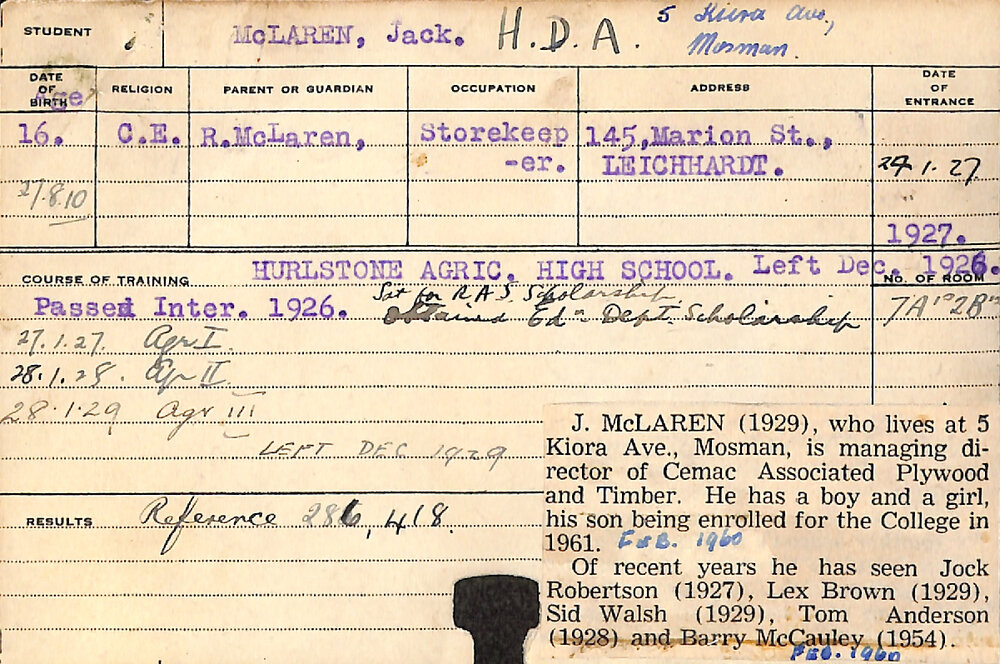 STUDENT
McLAREN, Jack. H.D.A. 5 Kiora Ave,
Mosman.
DATE OF BIRTH
Age
RELIGION
PARENT OR GUARDIAN
OCCUPATION
ADDRESS
DATE OF ENTRANCE
16. C.E. R.McLaren, Storekeep 145,Marion St.,
-er. LEICHHARDT. 24.1.27
27.8.10
1927.
COURSE OF TRAINING HURLSTONE AGRIC. HIGH SCHOOL. Left Dec. 1926.
NO. OF ROOM
Sat for R.A.S. Scholarship.
Passed Inter. 1926. Obtained Edn. Dept. Scholarship 7A
27.1.27. Agr I.
28.1.28. Agr II.
28.1.29 Agr III
LEFT DEC 1929
RESULTS Reference 286, 418.
J. McLAREN (1929), who lives at 5
Kiora Ave., Mosman, is managing di-
rector of Cemac Associated Plywood
and Timber. He has a boy and a girl,
his son being enrolled for the College in
1961. FEB. 1960
Of recent years he has seen Jock
Robertson (1927), Lex Brown (1929),
Sid Walsh (1929), Tom Anderson
(1928) and Barry McCauley (1954).
FEB. 1960